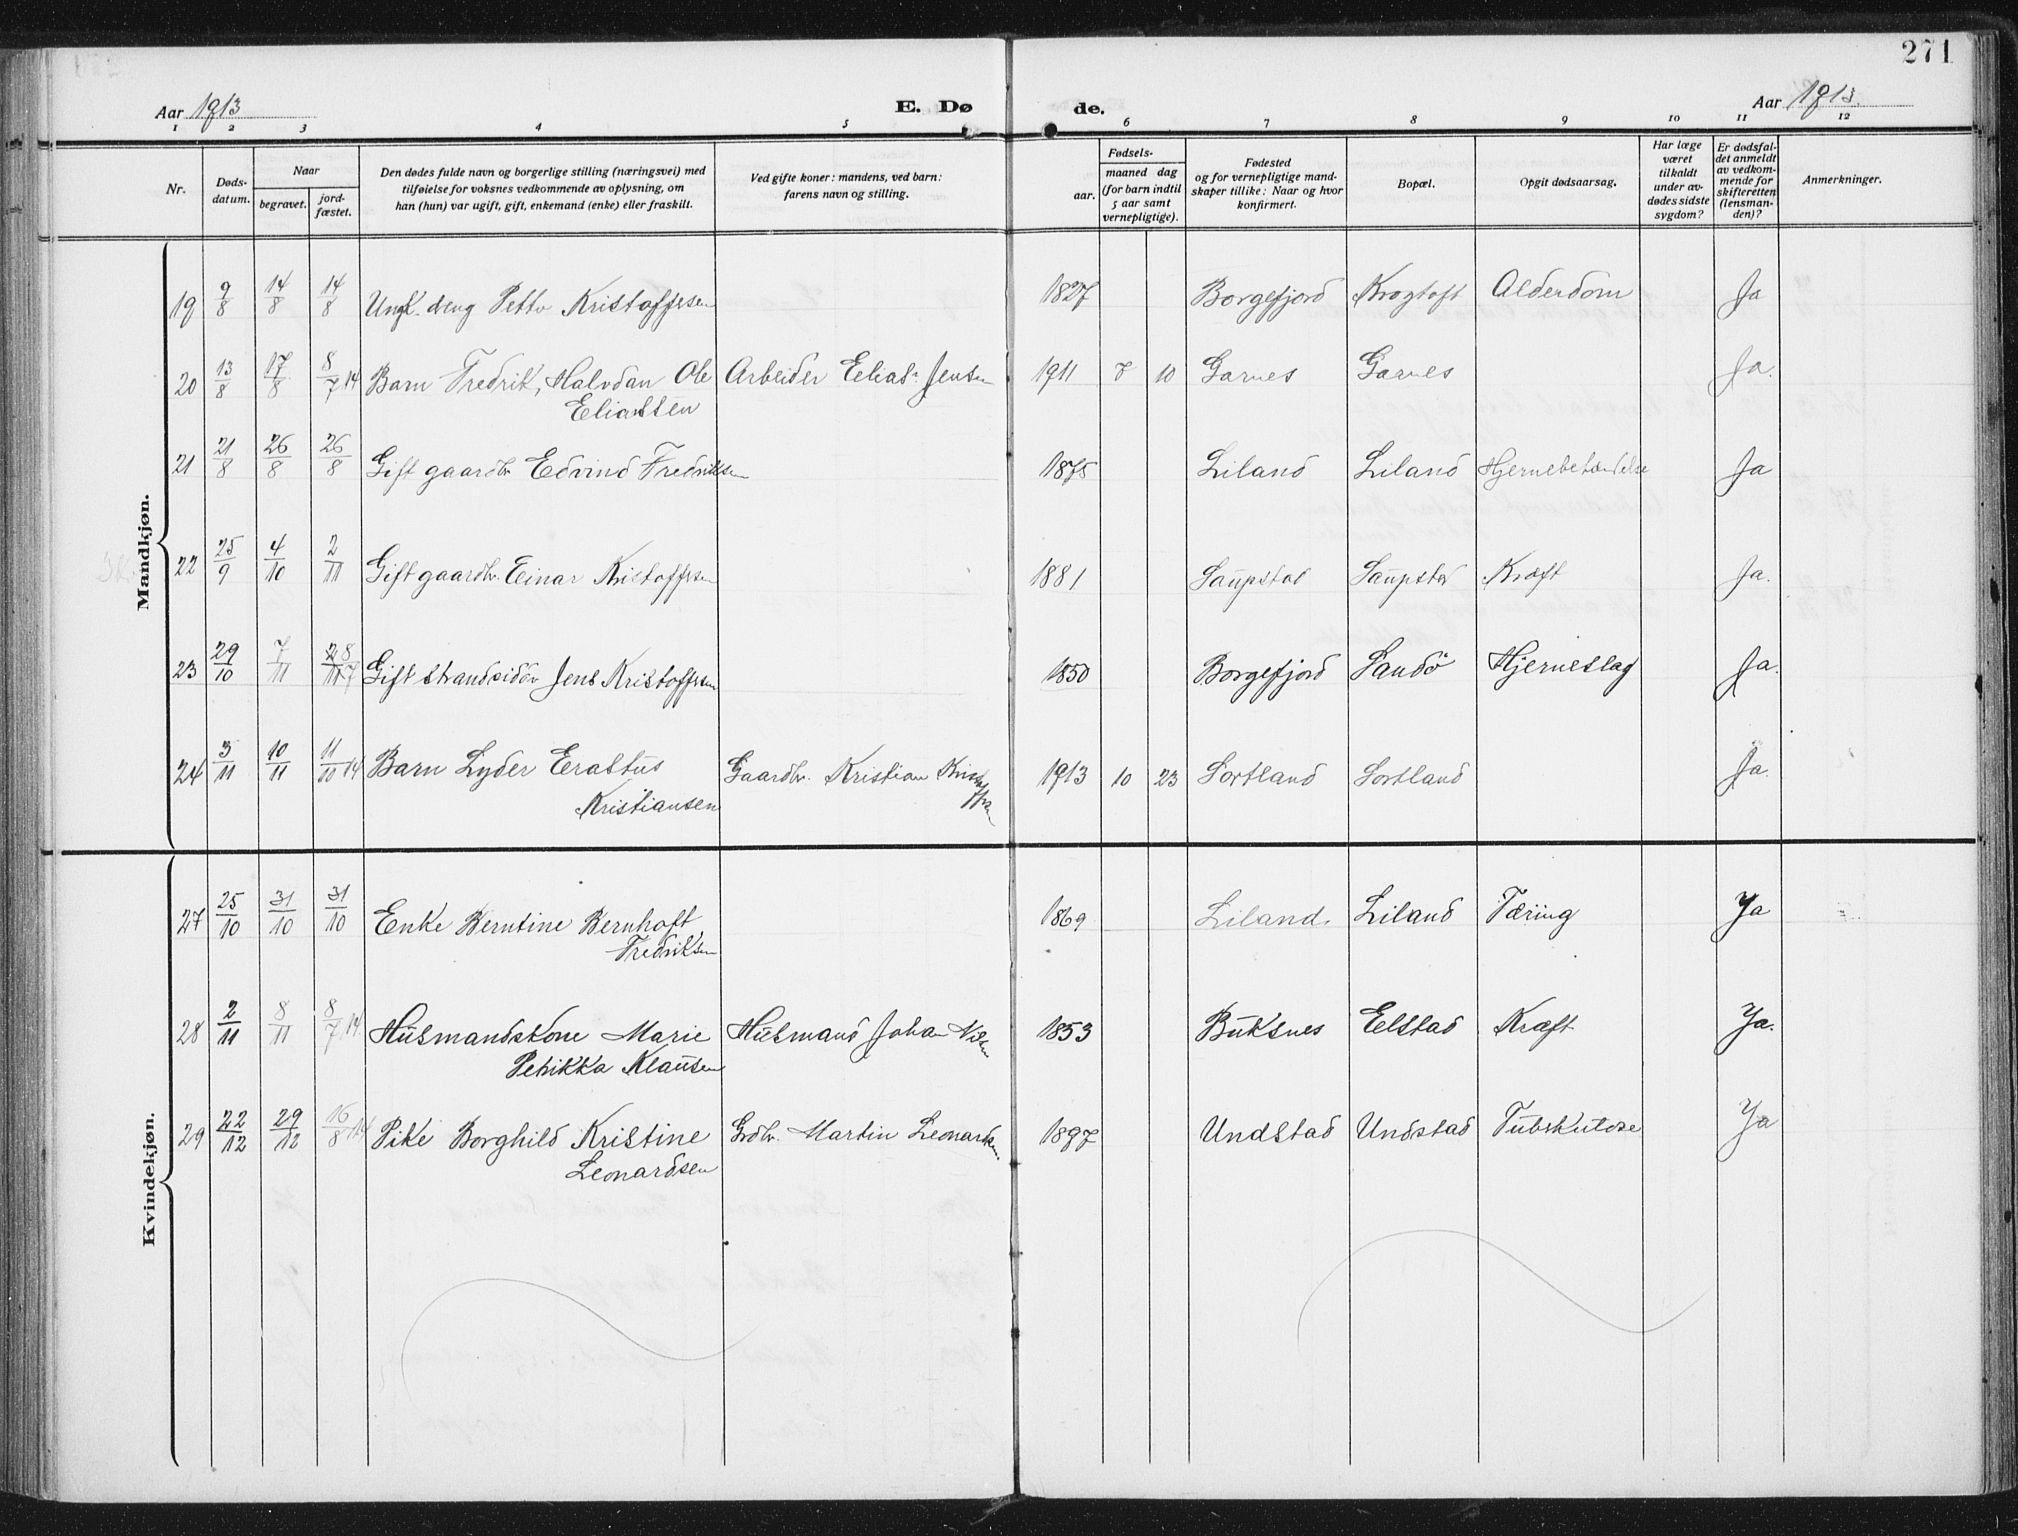 271
Aar 1913
E. Dø
de.
Aar 1913.
1 2 3 4 5 6 7 8 9 10 11 12
Nr.
Døds-
datum.
Naar
begravet.
jord-
fæstet.
Den dødes fulde navn og borgerlige stilling (næringsvei) med
tilføielse for voksnes vedkommende av oplysning, om
han (hun) var ugift, gift, enkemand (enke) eller fraskilt.
Ved gifte koner: mandens, ved barn:
farens navn og stilling.
Fødsels-
aar.
maaned dag
(for barn indtil
5 aar samt
vernepligtige).
Fødested
og for vernepligtige mand-
skaper tillike: Naar og hvor
konfirmert.
Bopæl.
Opgit dødsaarsag.
Har læge
været
tilkaldt
under av-
dødes sidste
sygdom?
Er dødsfal-
det anmeldt
av vedkom-
mende for
skifteretten
(lensman-
den)?
Anmerkninger.
Mandkjøn.
19 9/8 14/8 14/8 Ungk. dreng Kristoffersen 1827 Borgefjord Krogtoft Alderdom Ja
20 13/8 17/8 8/7 14 Barn Fredrik, Halvdan Ole Arbeider Elias Jensen 1911 7 10 Garnes Garnes Ja.
Eliassen
21 21/8 26/8 26/8 Gift gaardbr Edvind Fredriksen 1875 Liland Liland Hjernebetændelse Ja
22 25/9 4/10 2/11 Gift gaardbr. Einar Kristoffersen 1881 Saupstad Saupstad Kræft Ja.
23 29/10 7/11 Gift strandsidder Jens Kristoffersen 1850 Borgefjord Sandö Hjerneslag Ja.
24 3/11 10/11 11/10 14 Barn Lyder Erastus Gaardbr. Kristian 1913 10 23 Sortland Sortland Ja.
Kristiansen
Kvindekjøn.
27 25/10 31/10 31/10 Enke Berntine Bernhoft 1869 Liland. Liland Tæring Ja
Fredriksen
28 2/11 8/11 8/7 14 Husmandskone Marie Husmand Johan 1853 Buksnes Elstad Kræft Ja.
Petrikka Klausen
29 22/12 29/12 16/8 14 Pike Borghild Kristine Grdbr. Martin Leonardsen. 1897 Undstad Undstad Tuberkulose Ja
Leonardsen